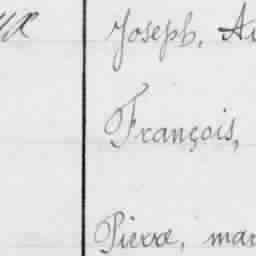 Joseph, Au
François,
Pierre, mar